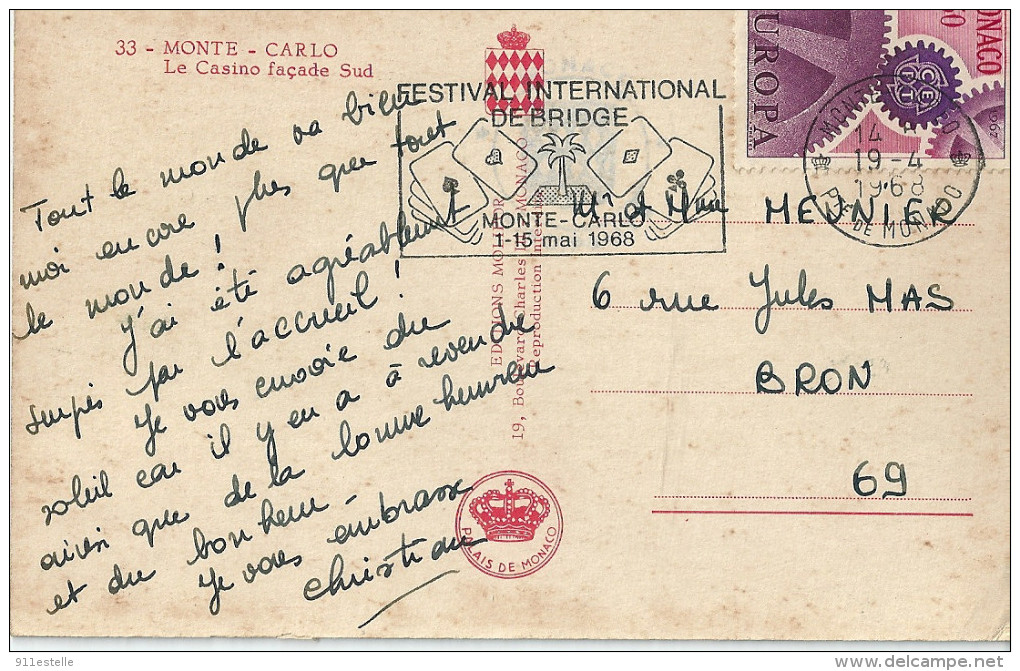 33 - MONTE - CARLO
Le Casino façade Sud
Tout le monde va bien
moi encore plus que tout
le monde !
J'ai été agréablement
surpris par l'accueil !
Je vous envoie du
soleil car il y en a à revendre
ainsi que de la bonne humeur
et du bonheur -
Je vous embrasse
Christiane
EDITIONS
19, Boulevard Charles III MONACO
Reproduction
PALAIS DE MONACO
FESTIVAL INTERNATIONAL
DE BRIDGE
MONTE-CARLO
1-15 mai 1968
EUROPA
MONACO
CEPT
1967
14
19-4
1968
PTÉ DE MONACO
Mr et Mme MEUNIER
6 rue Jules MAS
BRON
69
911estelle
delcampe.net